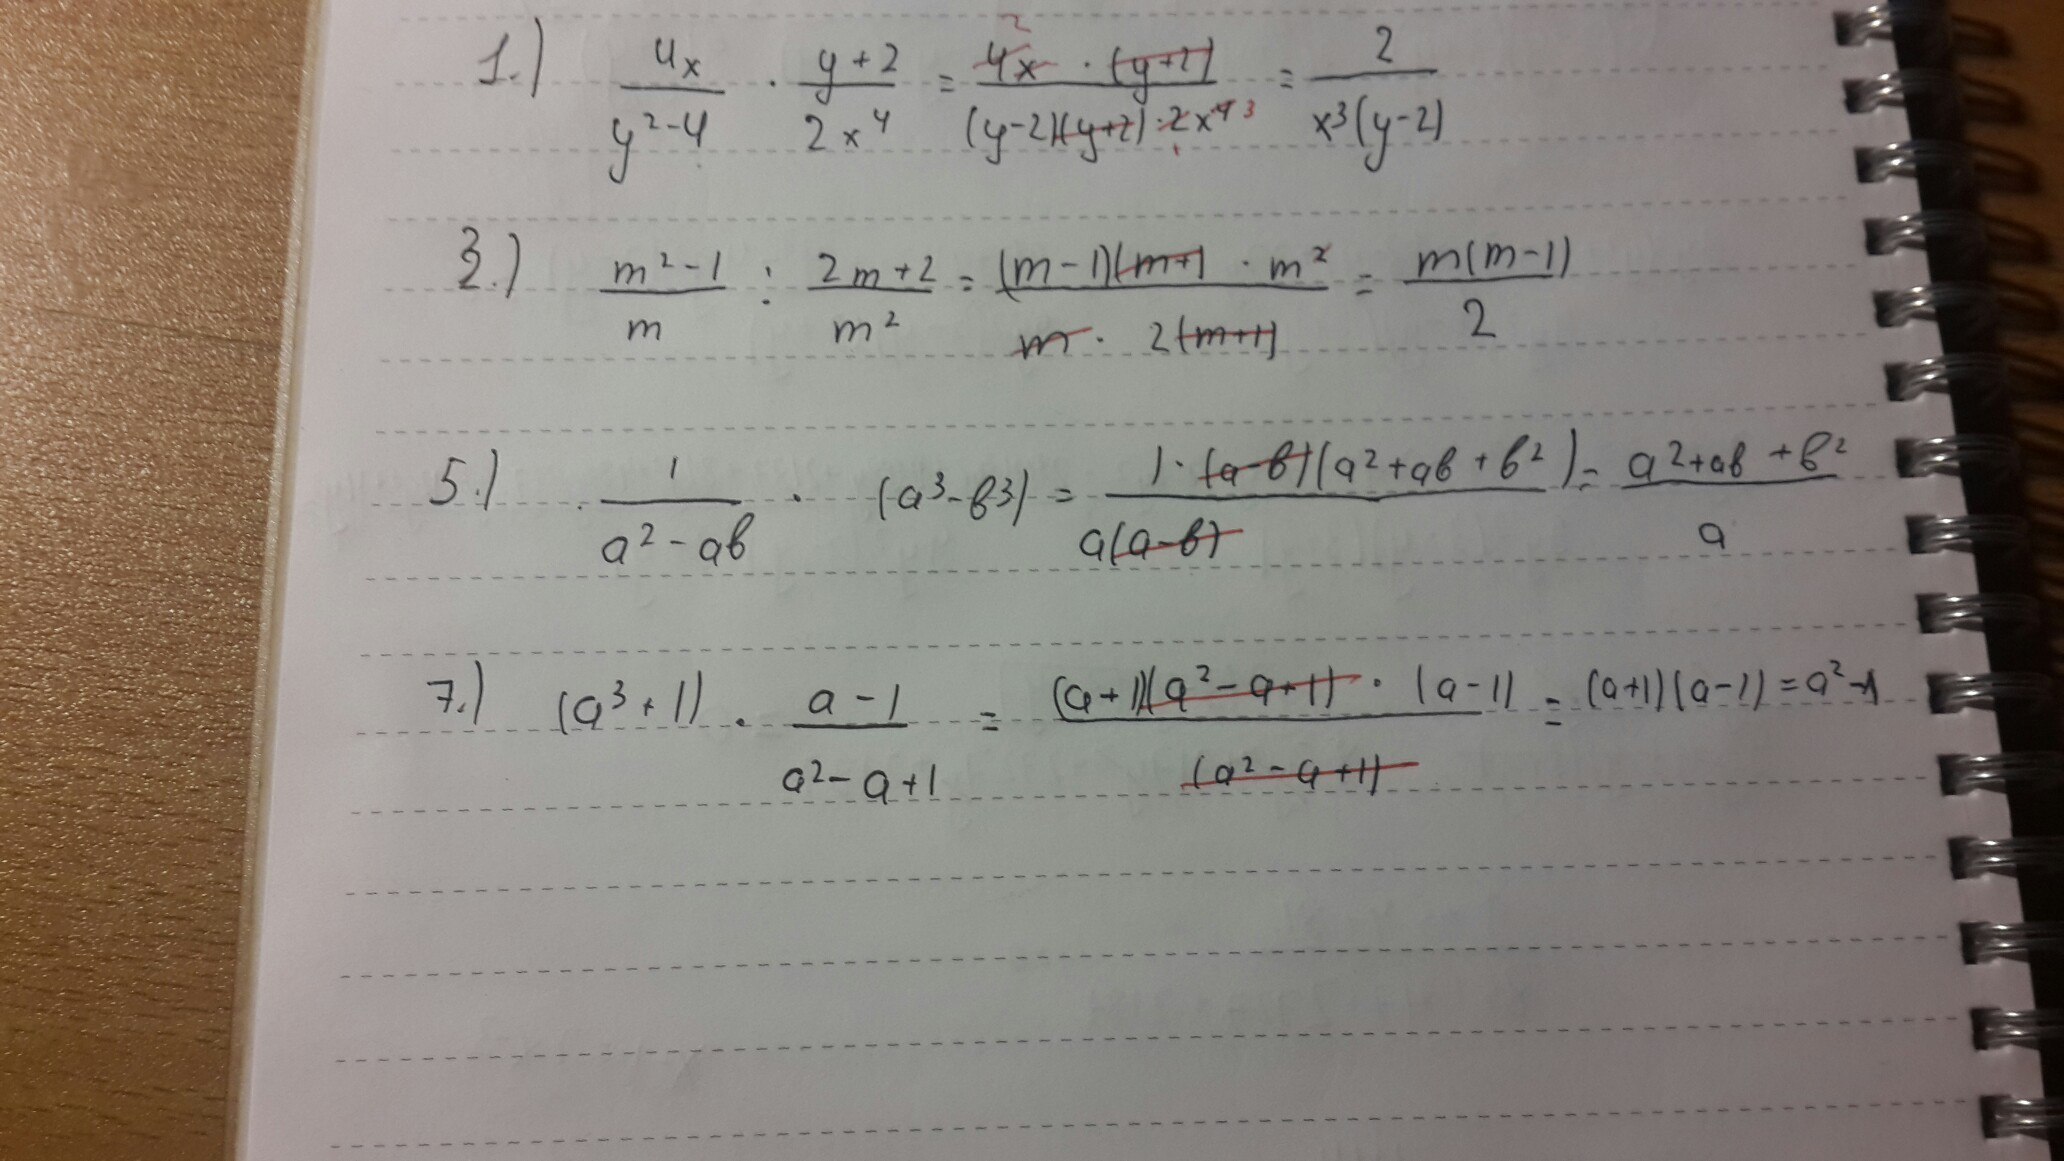 1.) 4x/(y²-4) · (y+2)/(2x⁴) = (4x · (y+2))/((y-2)(y+2) · 2x⁴) = 2/(x³(y-2))
3.) (m²-1)/m : (2m+2)/m² = ((m-1)(m+1) · m²)/(m · 2(m+1)) = m(m-1)/2
5.) 1/(a²-ab) · (a³-b³) = (1·(a-b)(a²+ab+b²))/(a(a-b)) = (a²+ab+b²)/a
7.) (a³+1) · (a-1)/(a²-a+1) = ((a+1)(a²-a+1) · (a-1))/((a²-a+1)) = (a+1)(a-1) = a²-1